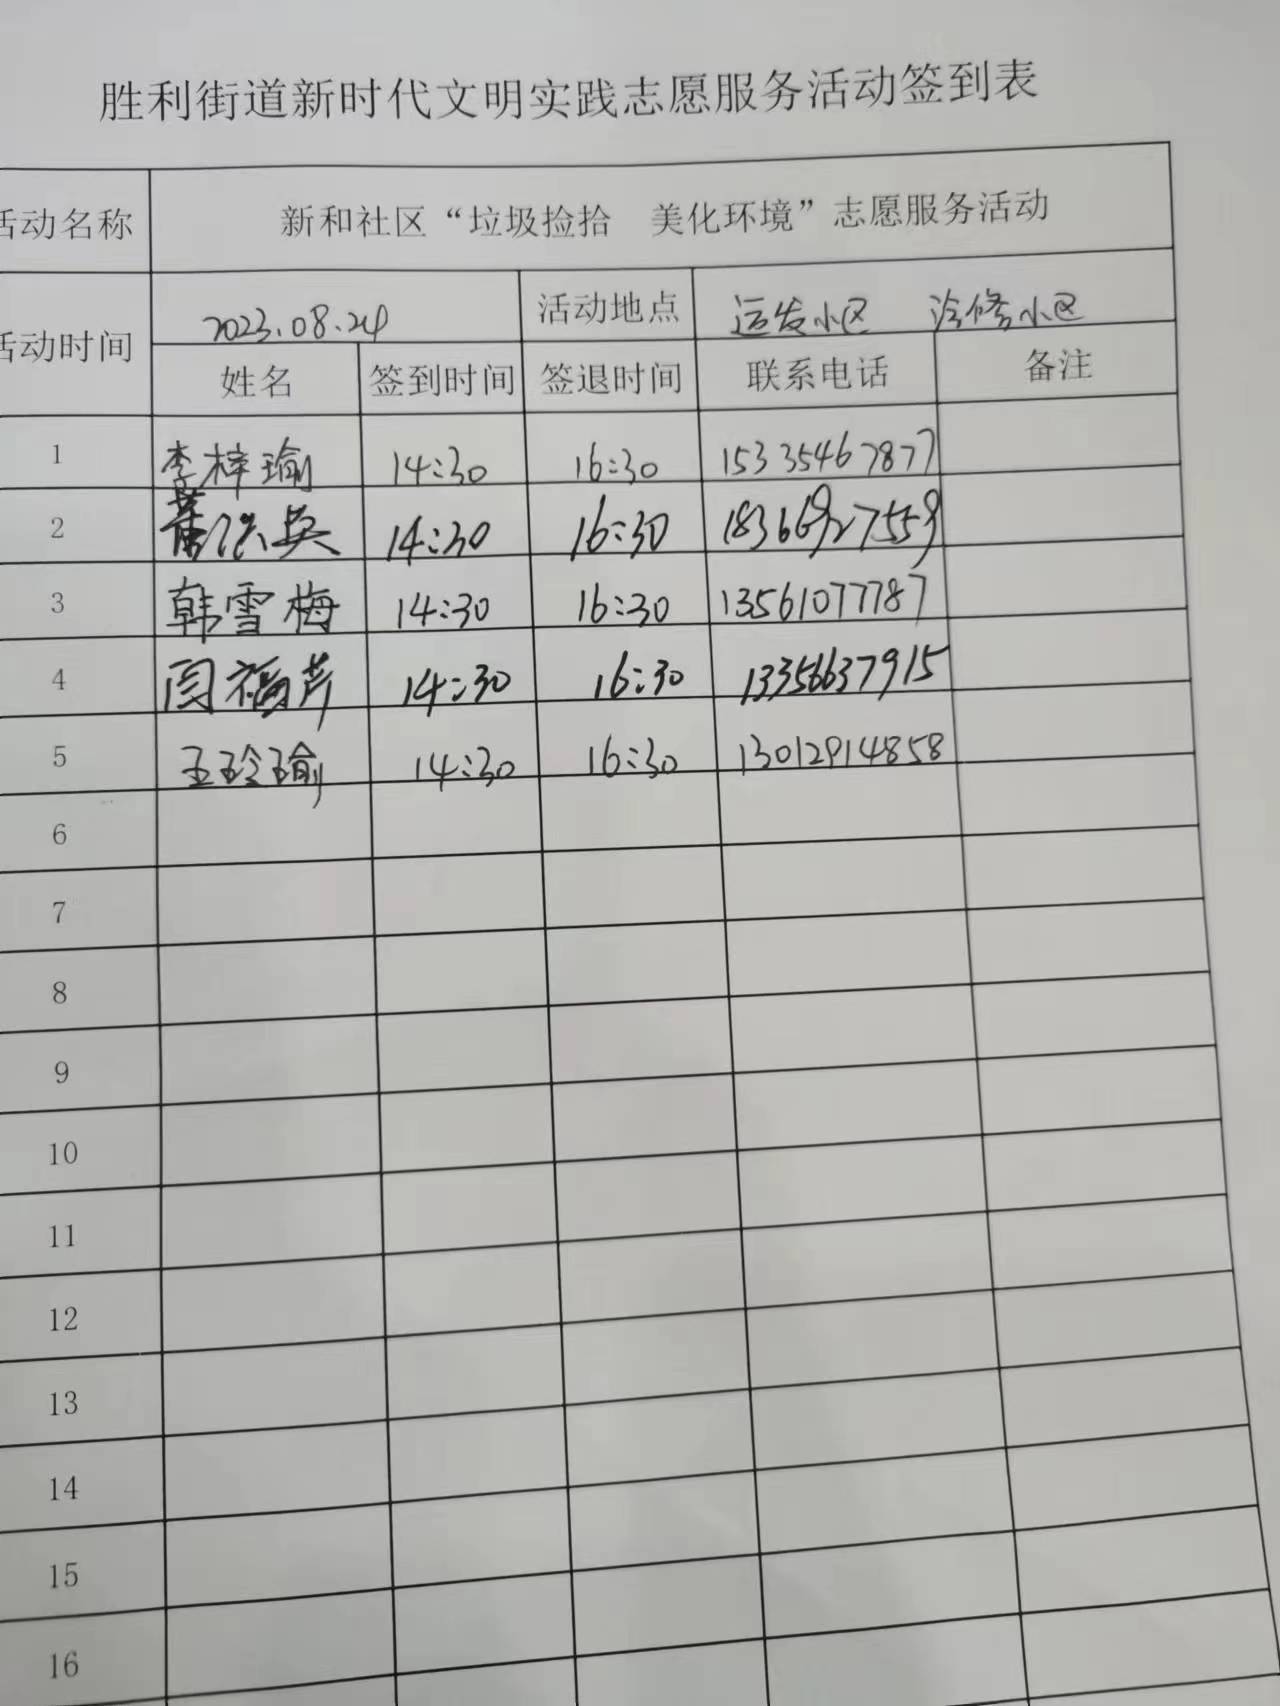 胜利街道新时代文明实践志愿服务活动签到表
活动名称 新和社区“垃圾捡拾 美化环境”志愿服务活动
活动时间 2023.08.24 活动地点 运发小区 冷修小区
姓名 签到时间 签退时间 联系电话 备注
1 李梓瑜 14:30 16:30 15335467877
2 14:30 16:30 18366927559
3 韩雪梅 14:30 16:30 13561077787
4 闫福芹 14:30 16:30 13356637915
5 王玲瑜 14:30 16:30 13012914858
6
7
8
9
10
11
12
13
14
15
16